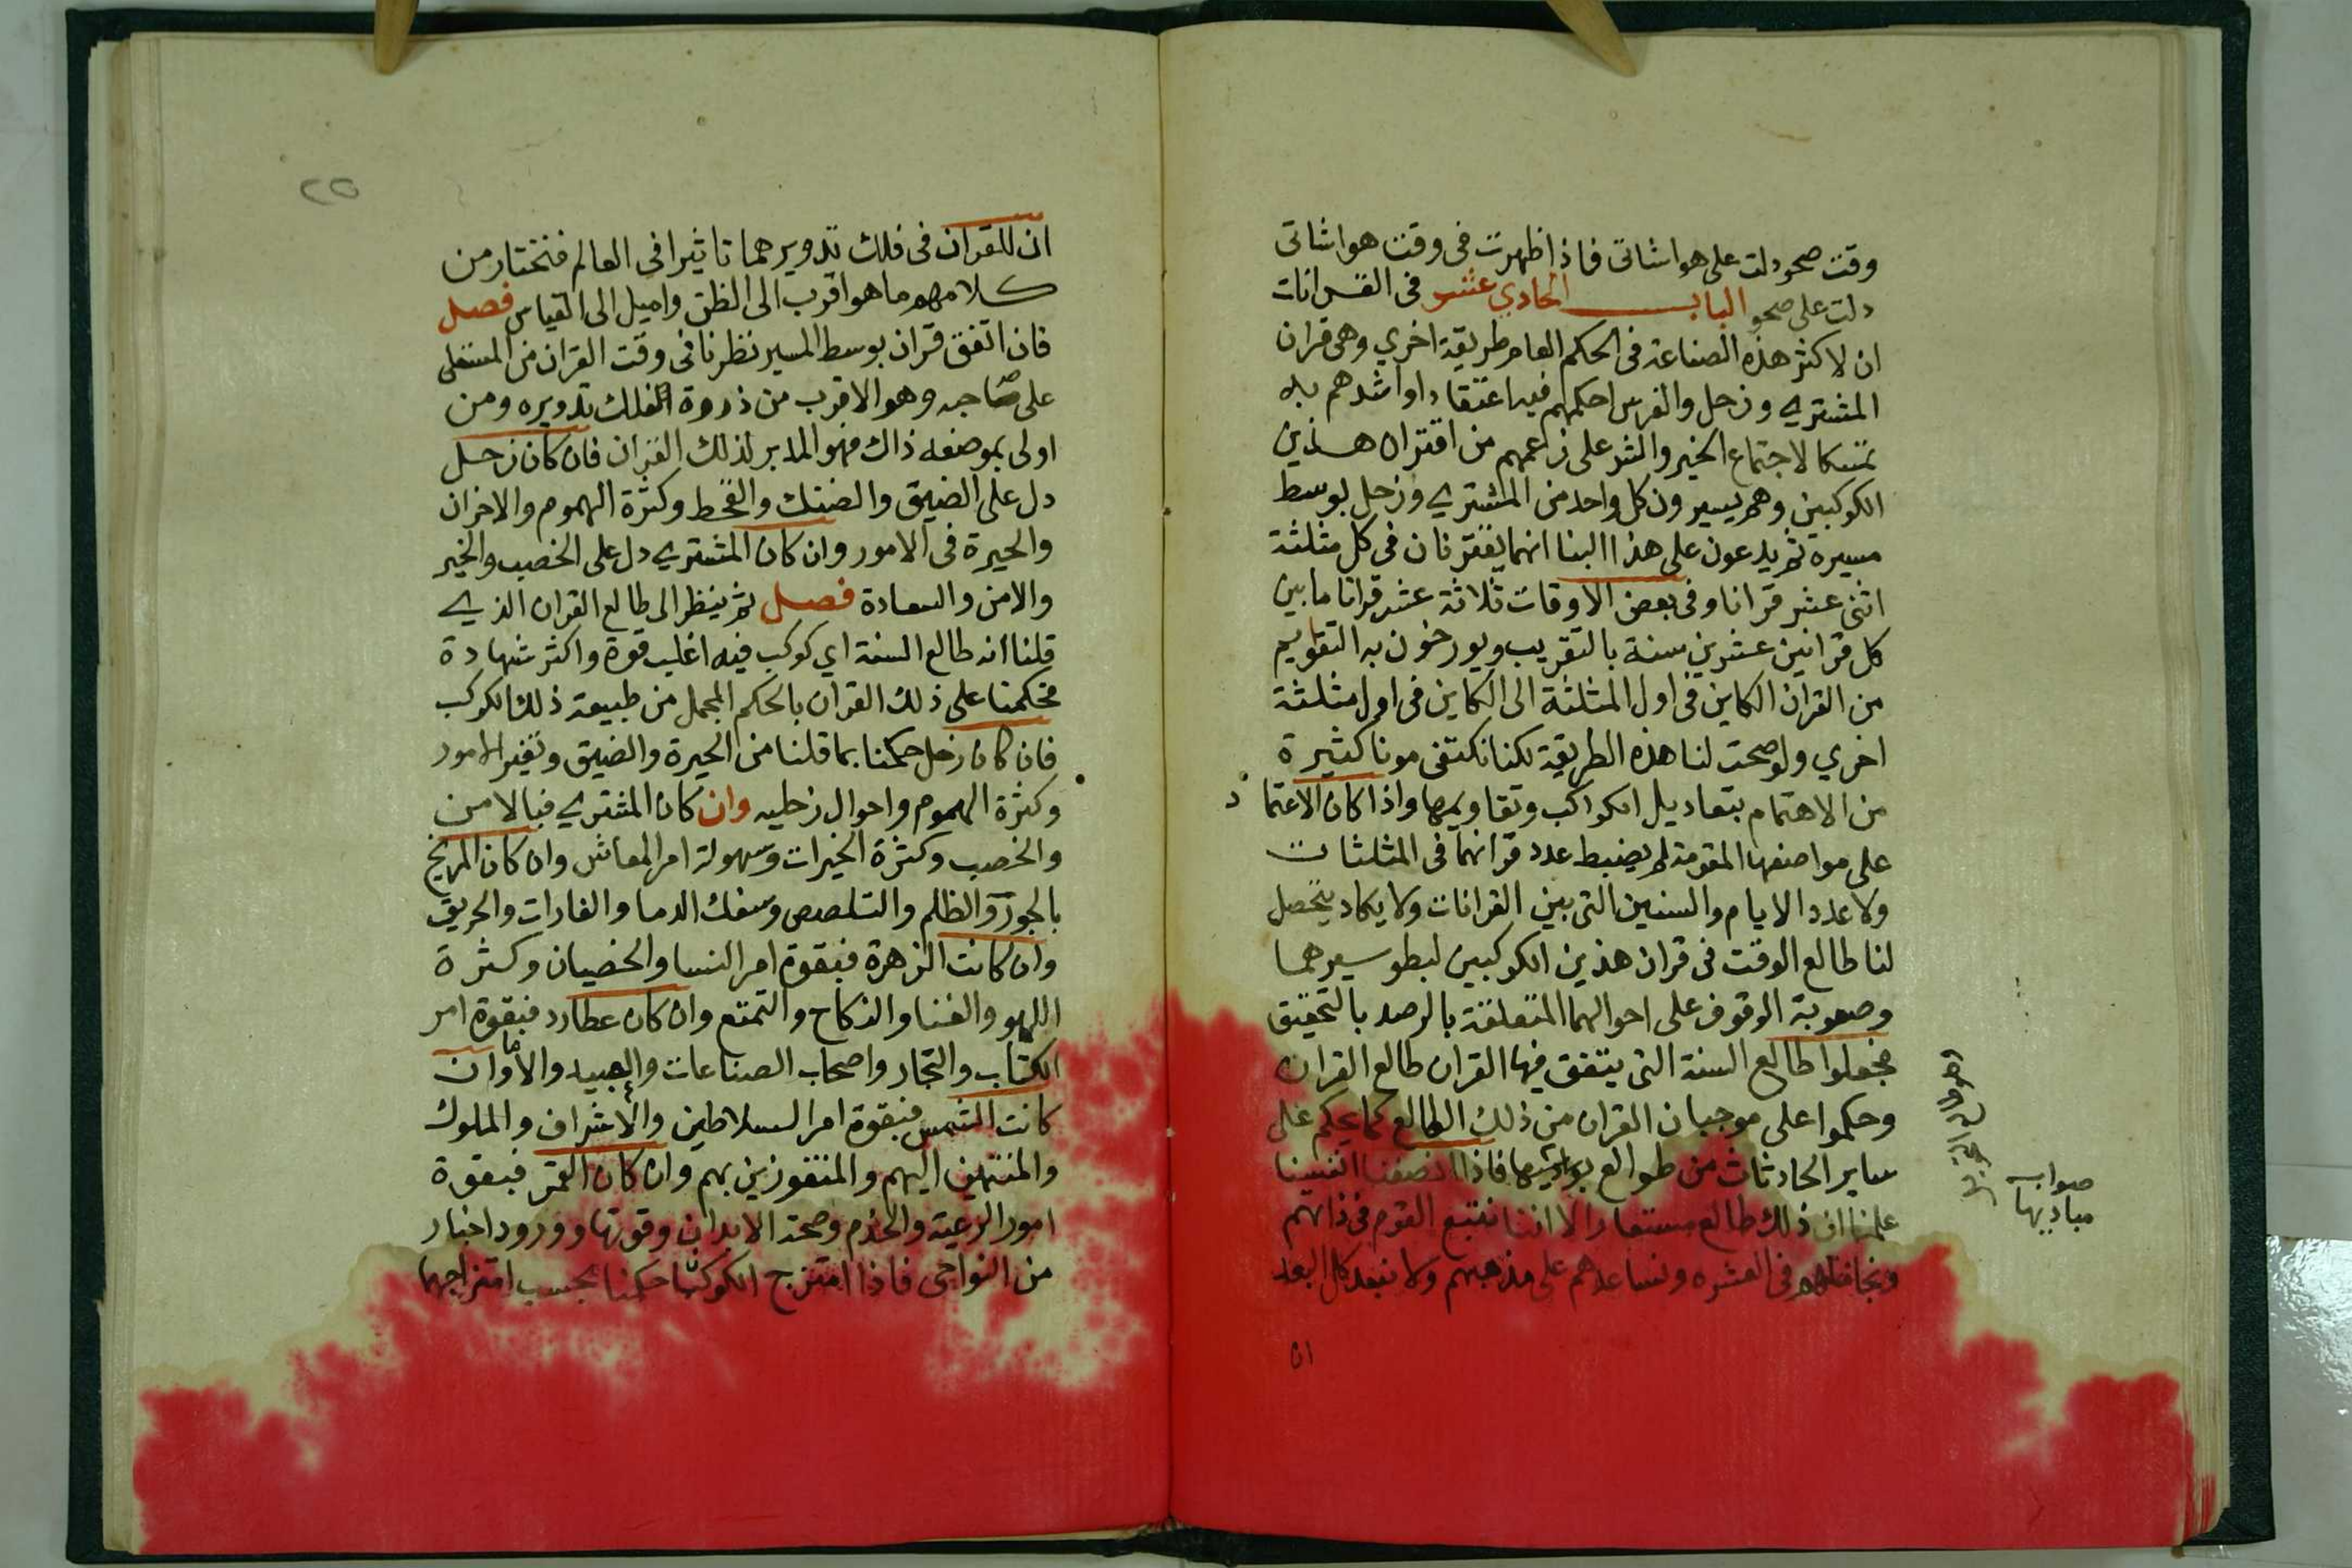 وقت صحو دلت على هواشاتى فاذا ظهرت فى وقت هواشاتى
دلت على صحو الباب الحادي عشر فى القرانات
ان لاكثر هذه الصناعة فى الحكم العام طريقة اخري وهى قران
المشتري وزحل والفرس احكمهم فيه اعتقادا واشدهم به
تمسكا لاجتماع الخير والشر على زعمهم من اقتران هذين
الكوكبين وهم يسيرون كل واحد من المشتري وزحل بوسط
مسيره ثم يدعون على هذا البنا انهما يقترنان فى كل مثلثة
اثنى عشر قرانا وفى بعض الاوقات ثلاثة عشر قرانا ما بين
كل قرانين عشرين سنة بالتقريب ويورخون به التقاويم
من القران الكاين فى اول المثلثة الى الكاين فى اول مثلثة
اخري ولو صحت لنا هذه الطريقة لكنا نكتفى مونا كثيرة
من الاهتمام بتعاديل الكواكب وتقاويمها واذا كان الاعتماد
على مواضعها المقومة لم يضبط عدد قرانهما فى المثلثات
ولا عدد الايام والسنين التى بين القرانات ولا يكاد يتحصل
لنا طالع الوقت فى قران هذين الكوكبين لبطو سيرهما
وصعوبة الوقوف على احوالهما المتعلقة بالرصد بالتحقيق
فجعلوا طالع السنة التى يتفق فيها القران طالع القران
وحكموا على موجبان القران من ذلك الطالع كما يحكم على
ساير الحادثات من طوالع فاذا انصفنا انفسنا
علمنا ان ذلك طالع مستعار الا اننا نتبع القوم فى ذانهم
فى العشره ونساعدهم على مذهبهم ولا نبعد كل البعد
ان
صوابه
مباديها
٢٥
ان للقران فى فلك تدويرهما تاثيرا فى العالم فنختار من
كلامهم ما هو اقرب الى الظن واميل الى القياس فصل
فان اتفق قران بوسط المسير نظرنا فى وقت القران من المستعلى
على صاحبه وهو الاقرب من ذروة الفلك تدويره ومن
اولى بموضعه ذاك فهو المدبر لذلك القران فان كان زحل
دل على الضيق والضنك والقحط وكثرة الهموم والاحزان
والحيرة فى الامور وان كان المشتري دل على الخصب والخير
والامن والسعادة فصل ثم ينظر الى طالع القران الذي
قلنا انه طالع السنة اي كوكب فيه اغلب قوة واكثر شهادة
فحكمنا على ذلك القران بالحكم المجمل من طبيعة ذلك الكوكب
فان كان زحل حكمنا بما قلنا من الحيرة والضيق وتغير الامور
وكثرة الهموم واحوال زحليه وان كان المشتري فبالامن
والخصب وكثرة الخيرات وسهولة امر المعاش وان كان المريخ
بالجور والظلم والتلصص وسفك الدما والغارات والحريق
وان كانت الزهرة فبقوة امر النسا والخصيان وكثرة
اللهو والغنا والنكاح والتمتع وان كان عطارد فبقوة امر
الكتاب والتجار واصحاب الصناعات والعبيد والاماوان
كانت الشمس فبقوة امر السلاطين والاشراف والملوك
والمنتمين اليهم والمتفوزين بهم وان كان القمر فبقوة
امور الرعية والخدم وصحة الابدان وقوتها وورود اخبار
من النواحى فاذا امتزج الكوكبا حكمنا بحسب امتزاجهما